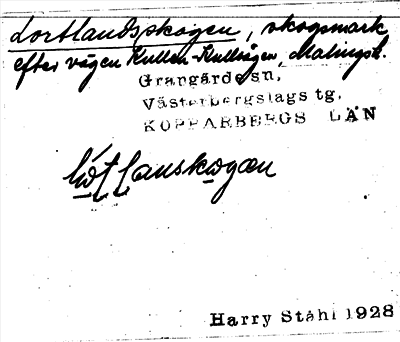 Lortlandsskogen, skogsmark
efter vägen Kullen-Kullsågen, Malingsb.
Grangärde sn,
Västerbergslags tg,
KOPPARBERGS LÄN
Harry Ståhl 1928